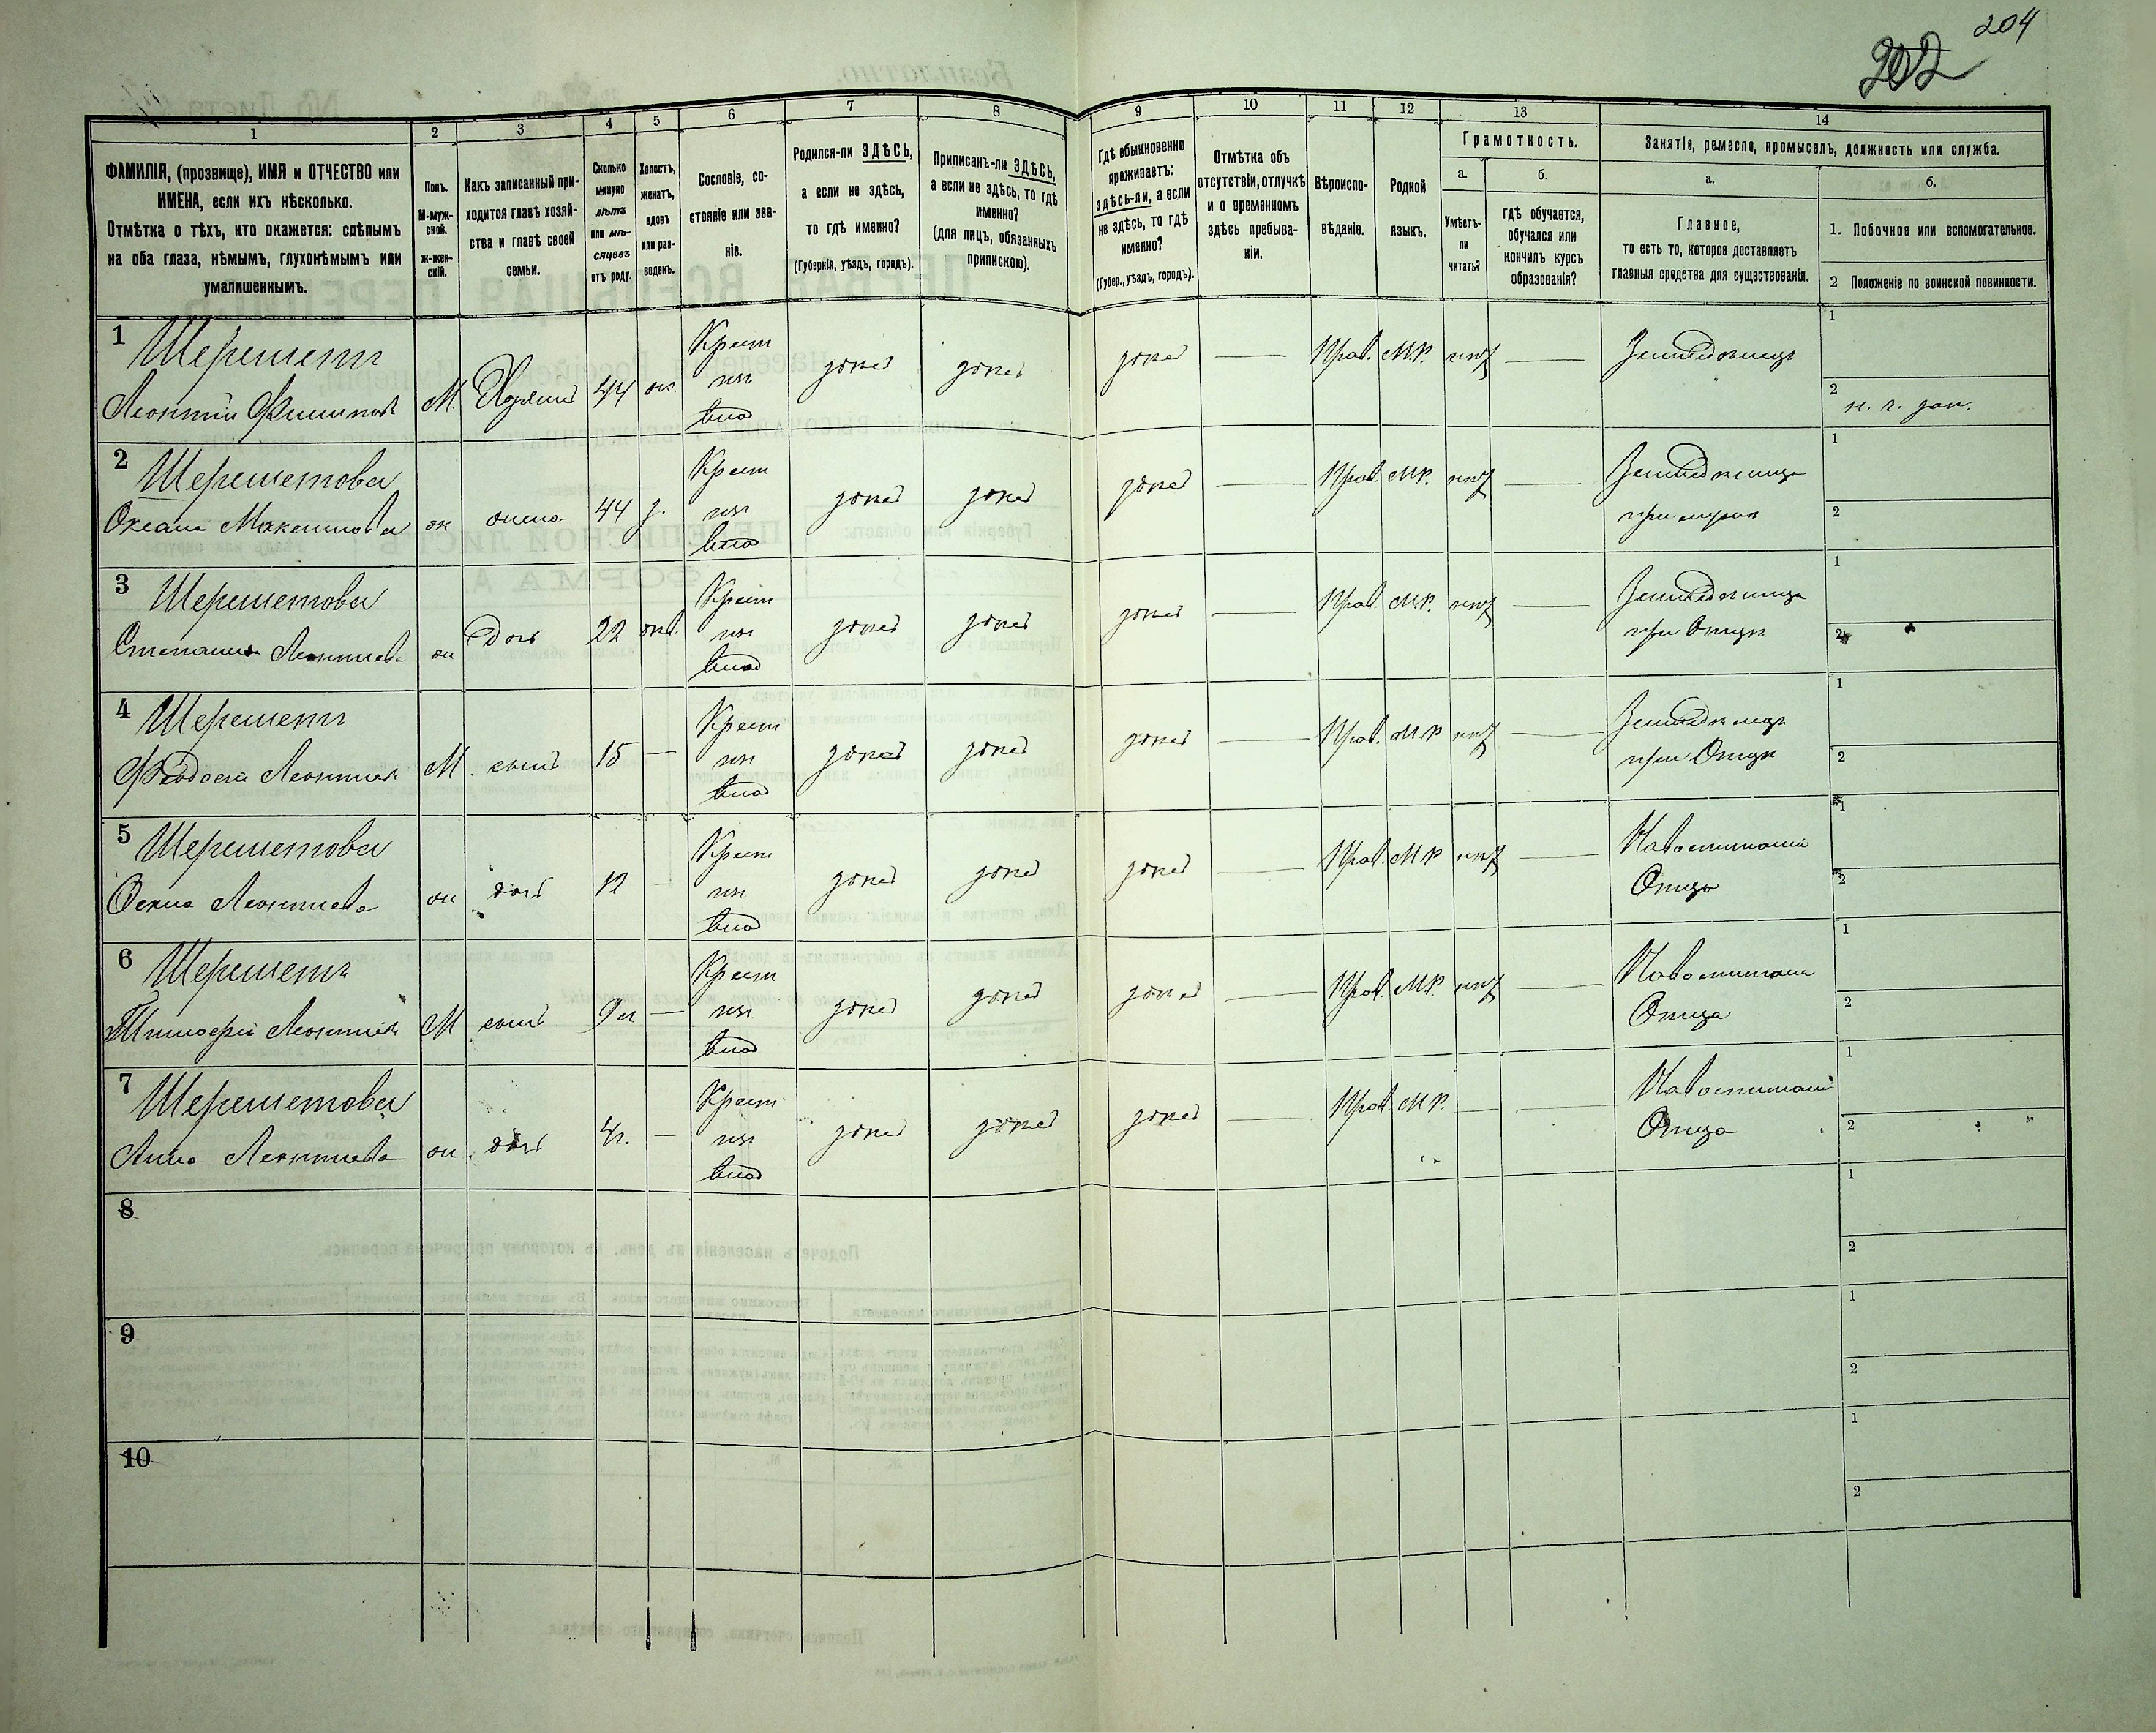 204
202
1
2
3
4
5
6
7
8
9
10
11
12
13
14
ФАМИЛІЯ, (прозвище), ИМЯ и ОТЧЕСТВО или
ИМЕНА, если ихъ нѣсколько.
Отмѣтка о тѣхъ, кто окажется: слѣпымъ
на оба глаза, нѣмымъ, глухонѣмымъ или
умалишеннымъ.
Полъ.
М-муж-
ской.
Ж-жен-
скій.
Какъ записанный при-
ходится главѣ хозяй-
ства и главѣ своей
семьи.
Сколько
минуло
лѣтъ
или мѣ-
сяцевъ
отъ роду.
Холостъ,
женатъ,
вдовъ
или раз-
веденъ.
Сословіе, со-
стояніе или зва-
ніе.
Родился-ли ЗДѢСЬ,
а если не здѣсь,
то гдѣ именно?
(Губернія, уѣздъ, городъ).
Приписанъ-ли ЗДѢСЬ,
а если не здѣсь, то гдѣ
именно?
(для лицъ, обязанныхъ
припискою).
Гдѣ обыкновенно
проживаетъ:
здѣсь-ли, а если
не здѣсь, то гдѣ
именно?
(Губер., уѣздъ, городъ).
Отмѣтка объ
отсутствіи, отлучкѣ
и о временномъ
здѣсь пребыва-
ніи.
Вѣроиспо-
вѣданіе.
Родной
языкъ.
Грамотность.
а.
Умѣетъ-
ли
читать?
б.
гдѣ обучается,
обучался или
кончилъ курсъ
образованія?
Занятіе, ремесло, промыселъ, должность или служба.
а.
Главное,
то есть то, которое доставляетъ
главныя средства для существованія.
б.
1. Побочное или вспомогательное.
2 Положеніе по воинской повинности.
1 Шереметъ
Леонтій Филиповъ
М. Хозяинъ 44 ж. Крест
изъ
влад
здѣсь здѣсь здѣсь — Прав. М.Р. нѣтъ — Земледѣлецъ
1
2
2 Шереметова
Оксана Максимова
ж жена 44 з. Крест
изъ
влад
здѣсь здѣсь здѣсь — Прав. М.Р. нѣтъ — Земледѣлица
при мужѣ
1
2
3 Шереметова
Степанида Леонтіева
ж Дочь 22 Крест
изъ
влад
здѣсь здѣсь здѣсь — Прав. М.Р. нѣтъ — Земледѣлица
при Отцѣ
1
2
4 Шереметъ
Ѳеодосій Леонтіевъ
М. сынъ 15 — Крест
изъ
влад
здѣсь здѣсь здѣсь — Прав. М.Р. нѣтъ — Земледѣлецъ
при Отцѣ
1
2
5 Шереметова
Леонтіева
ж дочь 12 — Крест
изъ
влад
здѣсь здѣсь здѣсь — Прав. М.Р. нѣтъ — На воспитаніи
Отца
1
2
6 Шереметъ
Тимофѣй Леонтіевъ
М сынъ 9 л — Крест
изъ
влад
здѣсь здѣсь здѣсь — Прав. М.Р. нѣтъ — На воспитаніи
Отца
1
2
7 Шереметова
Анна Леонтіева
ж. дочь 4 г. — Крест
изъ
влад
здѣсь здѣсь здѣсь — Прав. М.Р. — — На воспитаніи
Отца
1
2
8
1
2
9
1
2
10
1
2